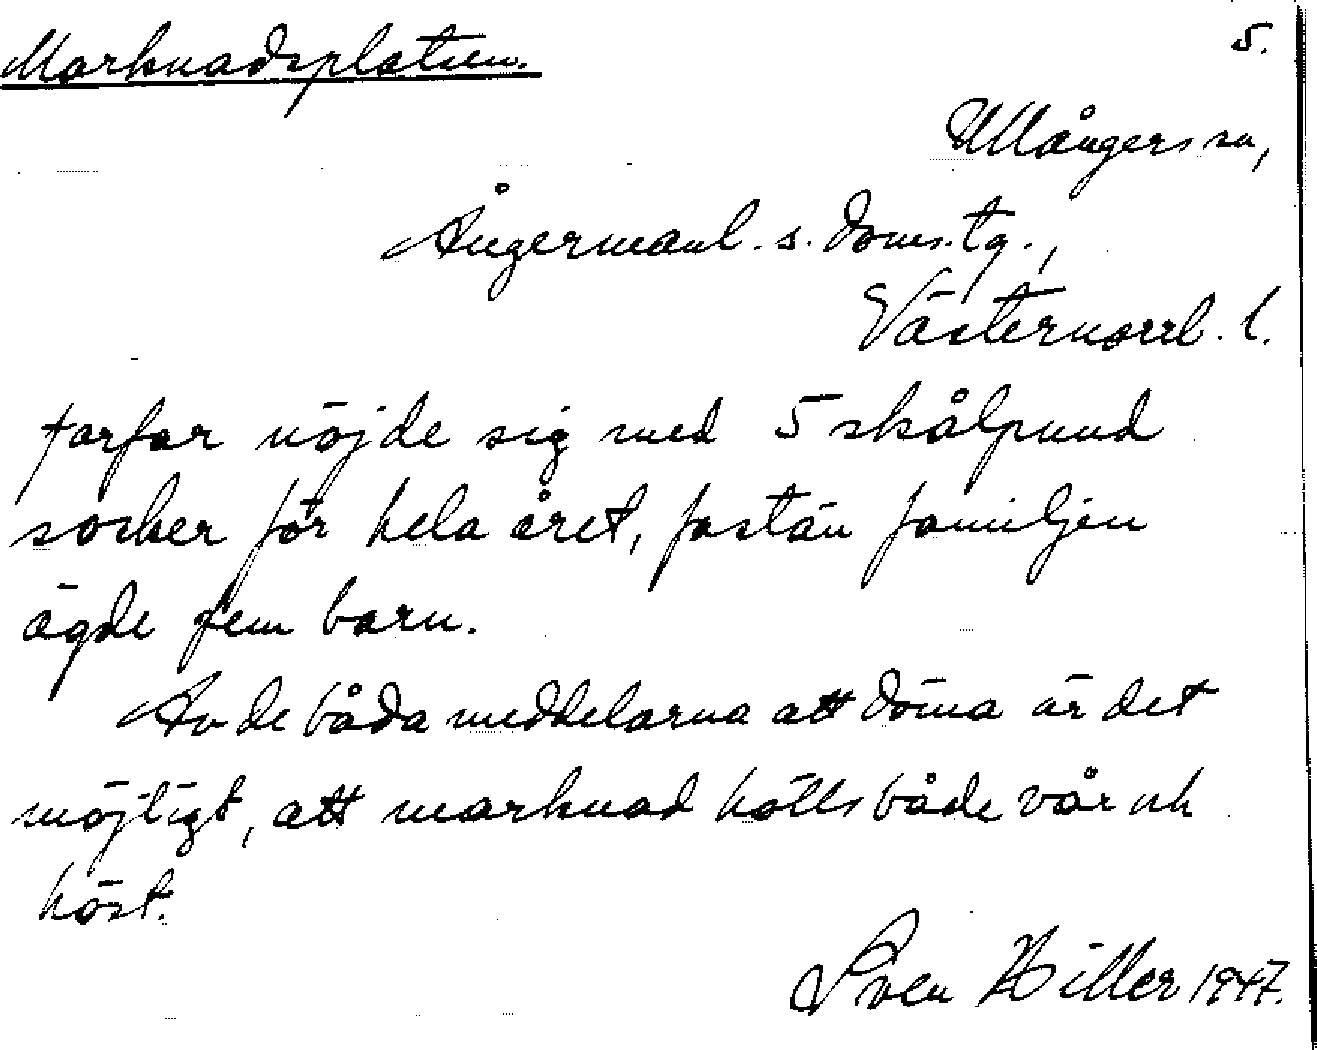 Marknadsplatsen.
5.
Ullångers sn,
Ångermanl. s. doms. tg.,
Västernorrl. l.
farfar nöjde sig med 5 skålpund
socker för hela året, fastän familjen
ägde fem barn.
Av de båda meddelarna att döma är det
möjligt, att marknad hölls både vår och
höst.
Sven Hiller 1947.